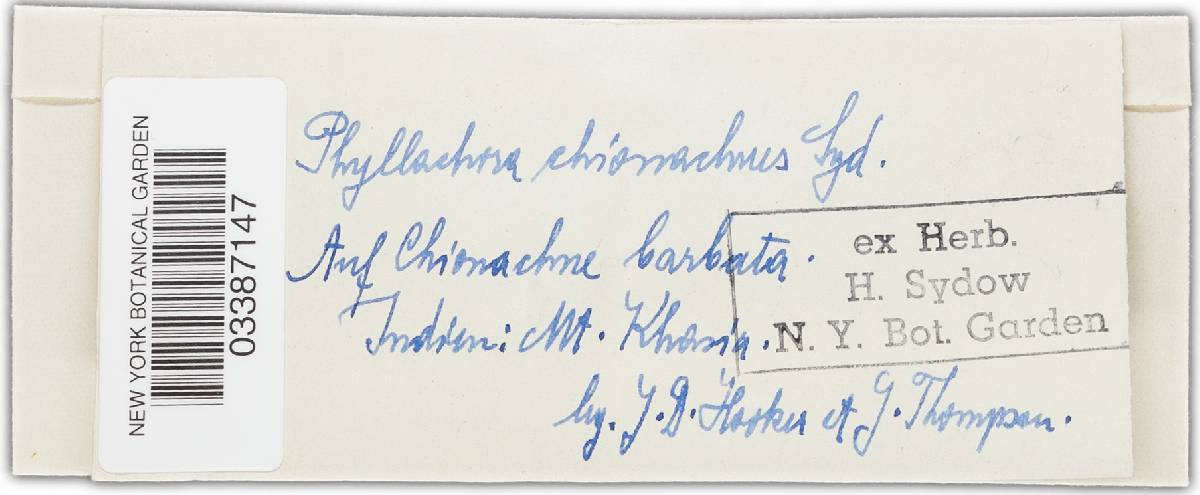 NEW YORK BOTANICAL GARDEN
03387147
Phyllachora chionachnes Syd.
Auf Chionachne barbata.
Indien: Mt. Khasia.
leg. J. D. Hooker et G. Thompson.
ex Herb.
H. Sydow
N. Y. Bot. Garden